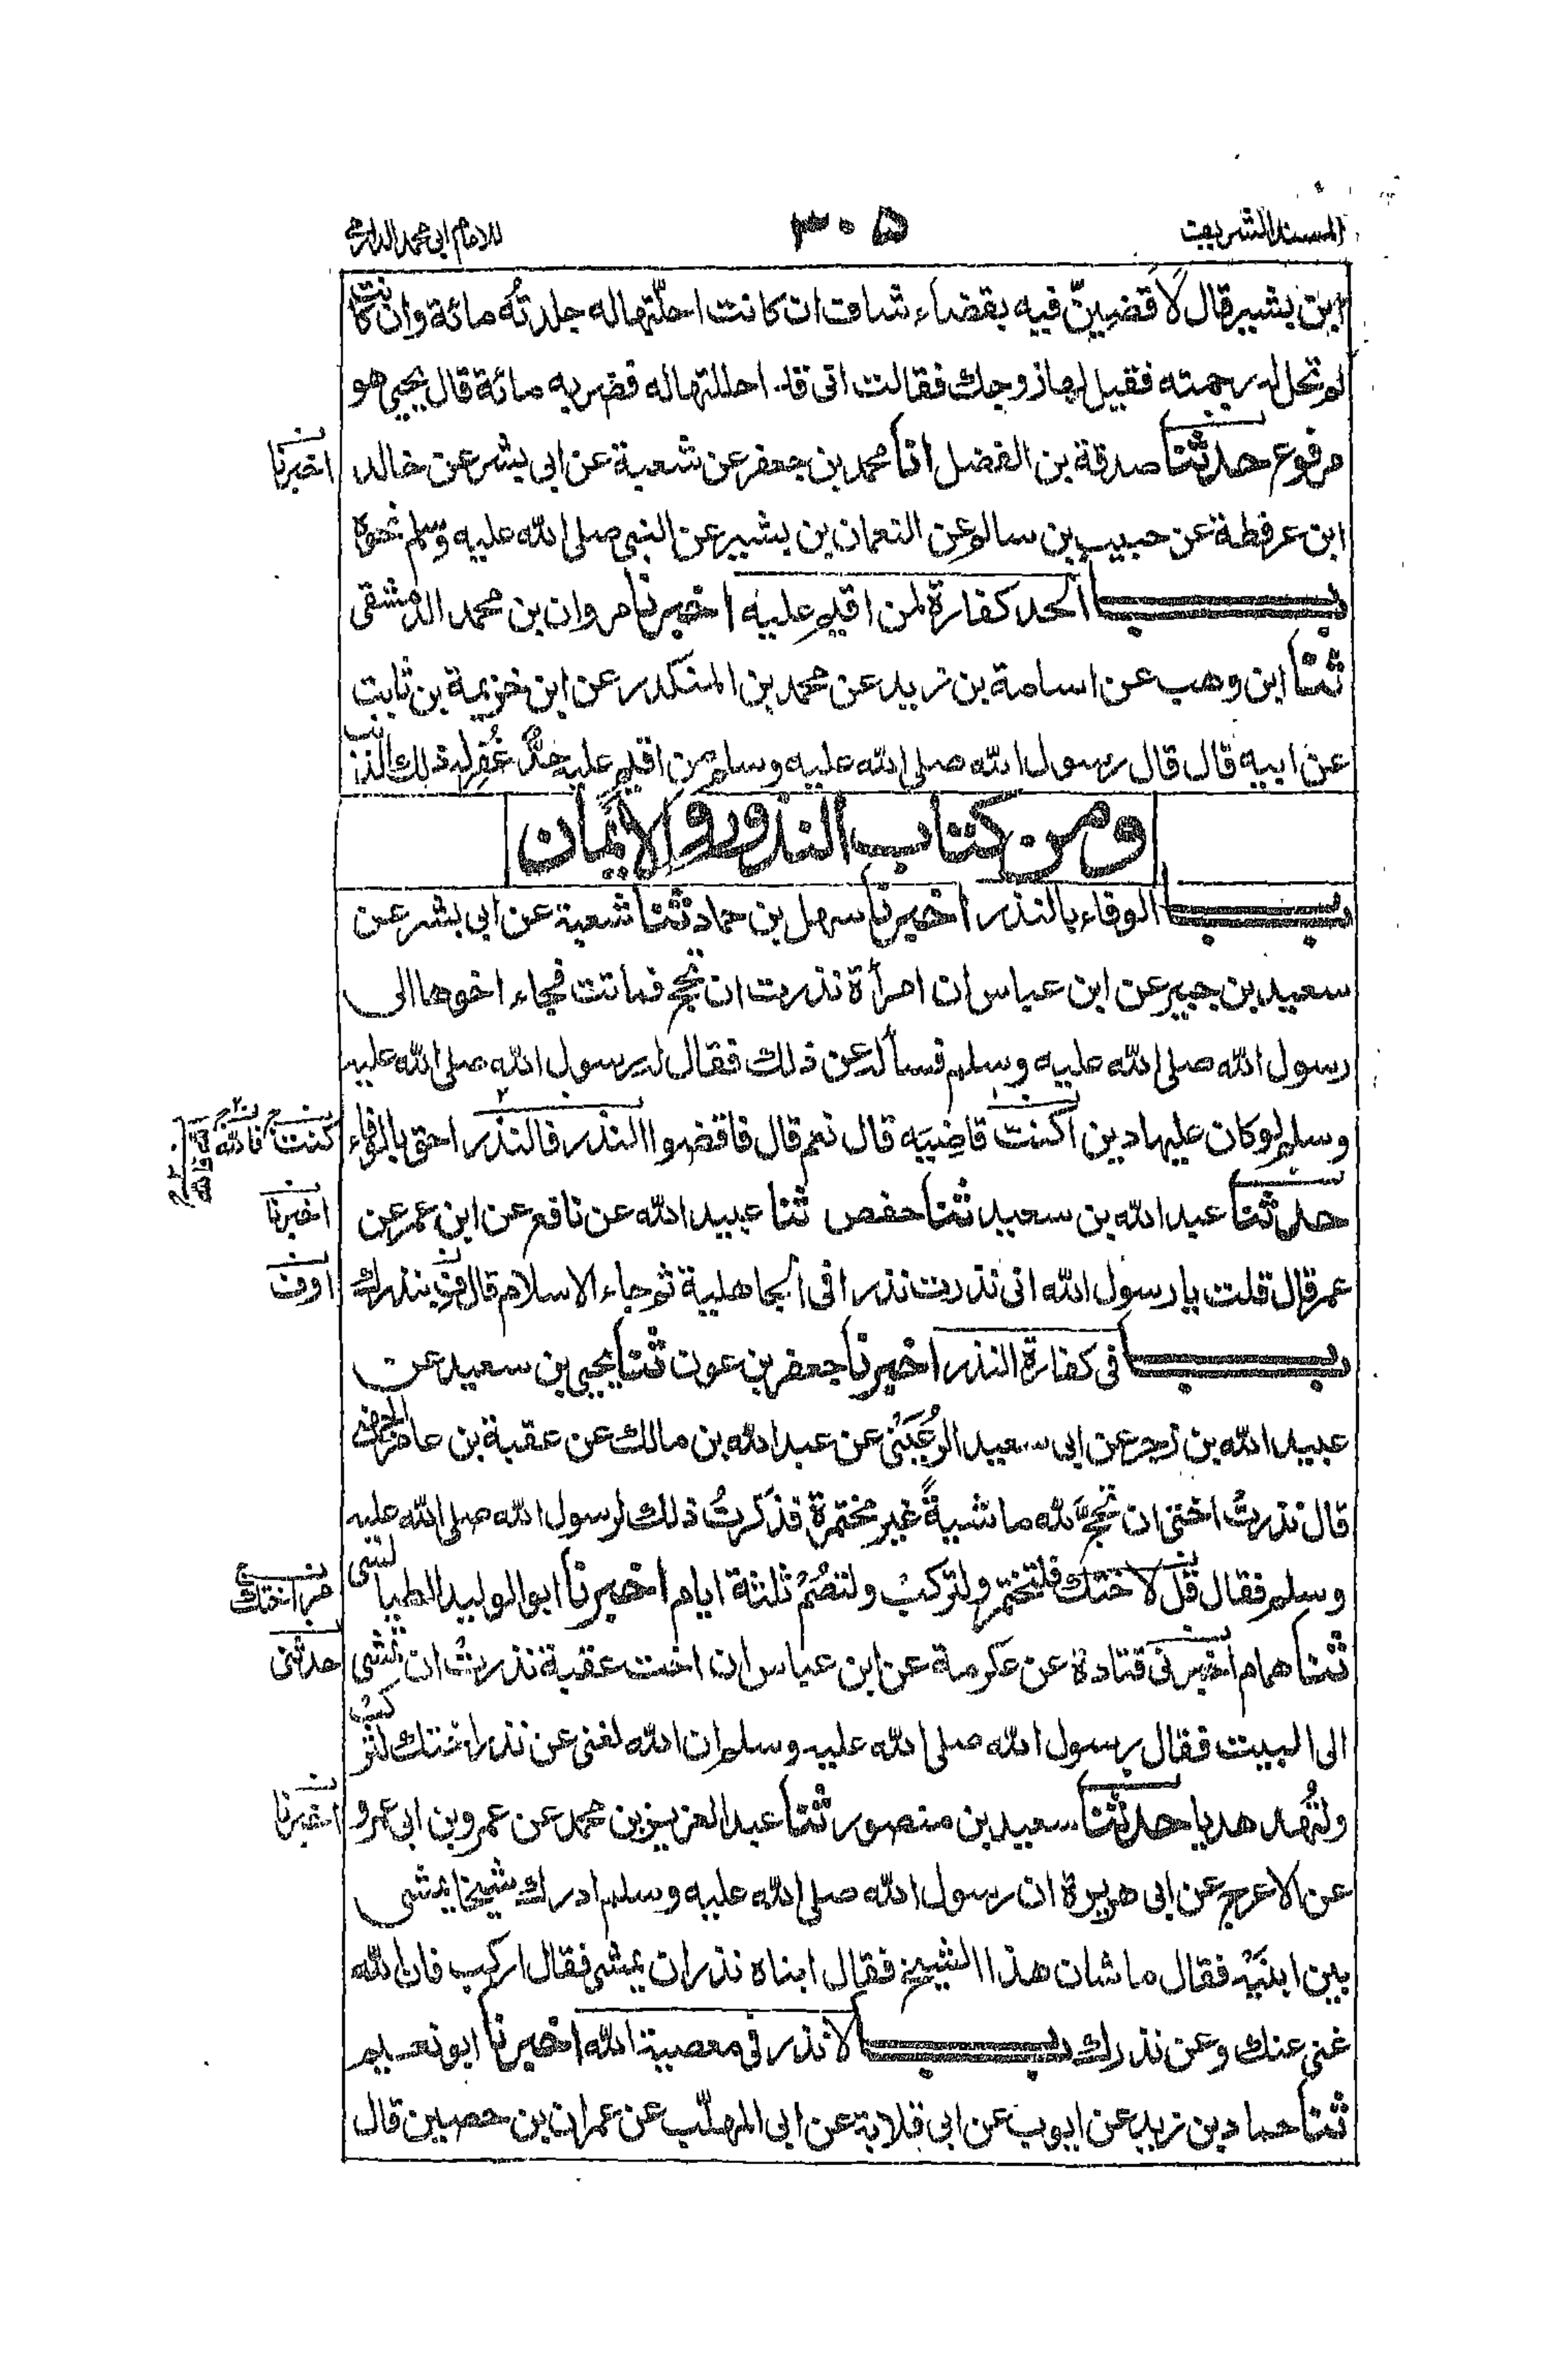 المسند الشريف
٣٠٥
للامام ابى محمد الدارمى
ابن بشير قال لَاَقضِيَنَّ فيه بقضاء شاف ان كانت احلّتها له جلدتُه مائة وان كانت
لم تحل له رجمته فقيل لها زوجك فقالت انى قد احللتها له فضربه مائة قال يحيى هو
مرفوع حدثنا صدقة بن الفضل انا محمد بن جعفر عن شعبة عن ابى بشر عن خالد
اخبرنا
ابن عرفطة عن حبيب بن سالم عن النعمان بن بشير عن النبى صلى الله عليه وسلم نحوه
بــــاب الحد كفارة لمن اقيم عليه اخبرنا مروان بن محمد الدمشقى
ثنا ابن وهب عن اسامة بن زيد عن محمد بن المنكدر عن ابن خزيمة بن ثابت
عن ابيه قال قال رسول الله صلى الله عليه وسلم من اقيم عليه حدٌّ غُفِر له ذلك الذنب
ومن كتاب النذور والايمان
بــــاب الوفاء بالنذر اخبرنا سهل بن حماد ثنا شعبة عن ابى بشر عن
سعيد بن جبير عن ابن عباس ان امرأة نذرت ان تحج فماتت فجاء اخوها الى
رسول الله صلى الله عليه وسلم فسأله عن ذلك فقال له رسول الله صلى الله عليه
وسلم لو كان عليها دين اكنت قاضِيَه قال نعم قال فاقضوا النذر فالنذر احق بالوفاء
كنت
حدثنا عبد الله بن سعيد ثنا حفص ثنا عبيد الله عن نافع عن ابن عمر عن
اخبرنا
عمر قال قلت يا رسول الله انى نذرت نذرا فى الجاهلية ثم جاء الاسلام قال فِ بنذرك
اوف
بــــاب فى كفارة النذر اخبرنا جعفر بن عون ثنا يحيى بن سعيد عن
عبيد الله بن زحر عن ابى سعيد الرُّعَيْنى عن عبد الله بن مالك عن عقبة بن عامر الجهنى
قال نذرتْ اختى ان تحجَّ لله ماشيةً غير مختمرة فذكرتُ ذلك لرسول الله صلى الله عليه
وسلم فقال قل لاختك فلتختمر ولتركبْ ولتصُمْ ثلثة ايام اخبرنا ابو الوليد الطيالسى
مر اختك
ثنا همام اخبرنى قتادة عن عكرمة عن ابن عباس ان اخت عقبة نذرتْ ان تمشى
حدثنى
الى البيت فقال رسول الله صلى الله عليه وسلم ان الله لغنى عن نذر اختك لتركبْ
ولتُهد هديا حدثنا سعيد بن منصور ثنا عبد العزيز بن محمد عن عمرو بن ابى عمرو
اخبرنا
عن الاعرج عن ابى هريرة ان رسول الله صلى الله عليه وسلم ادرك شيخا يمشى
بين ابنَيْه فقال ما شان هذا الشيخ فقال ابناه نذر ان يمشى فقال اركب فان الله
غنى عنك وعن نذرك بــــاب لا نذر فى معصية الله اخبرنا ابو نعيم
ثنا حماد بن زيد عن ايوب عن ابى قلابة عن ابى المهلّب عن عمران بن حصين قال